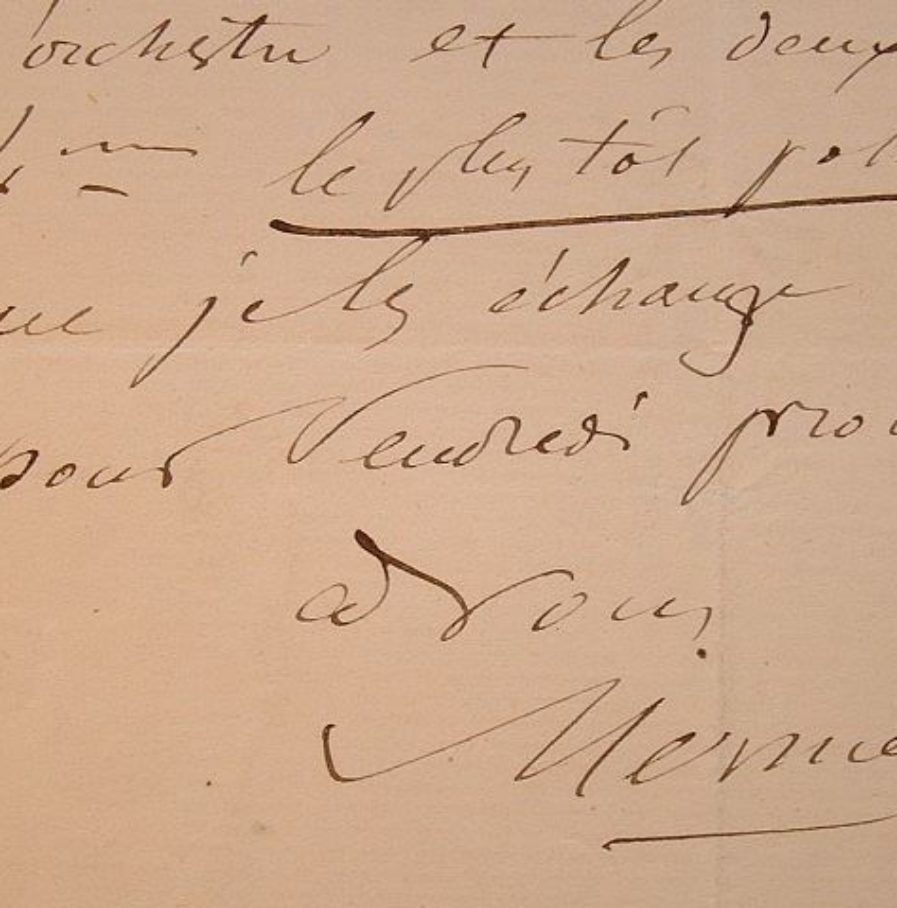 orchestre et les deux
le plus tôt pos
que je les échange
pour Vendredi pro
à vous